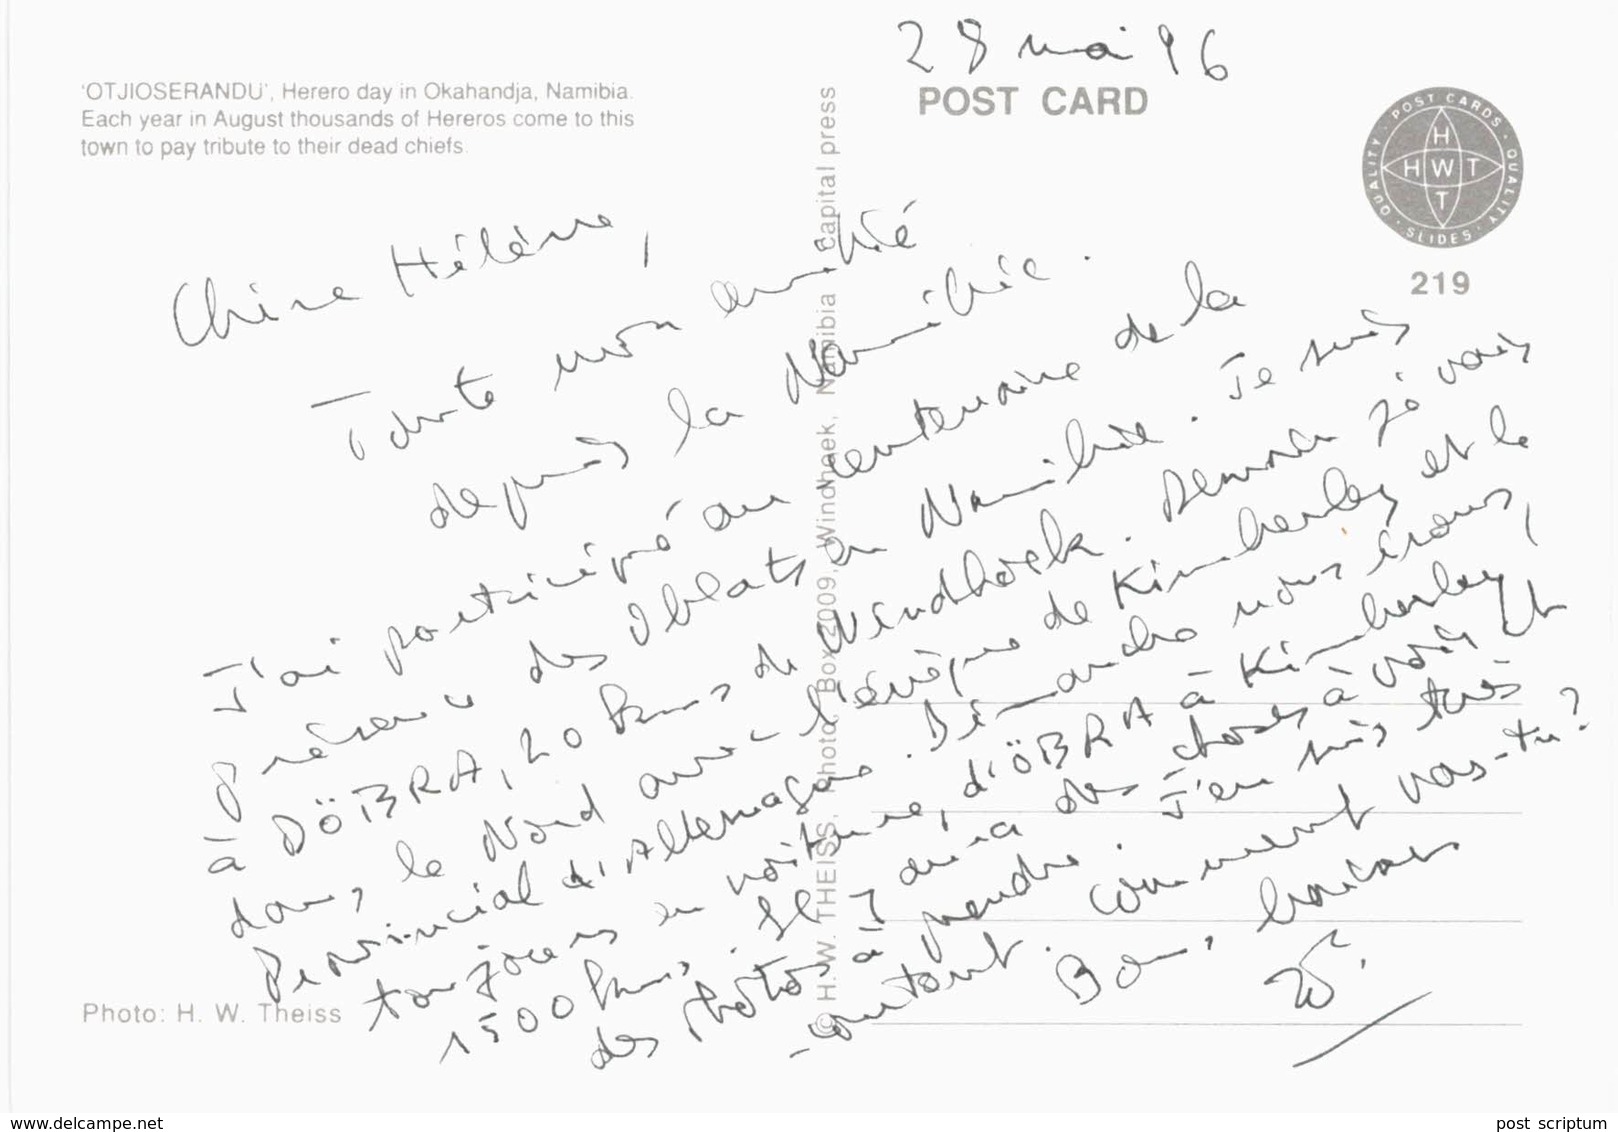 28 mai 96
'OTJIOSERANDU', Herero day in Okahandja, Namibia.
Each year in August thousands of Hereros come to this
town to pay tribute to their dead chiefs.
POST CARD
QUALITY · POST CARDS · QUALITY · SLIDES ·
H
H W T
T
219
Chère Hélène,
Toute mon amitié
depuis la Namibie.
J'ai participé au centenaire de la
présence des Oblats en Namibie. Je suis
à DÖBRA, 20 kms de Windhoek. Demain je vais
dans le Nord avec l'évêque de Kimberley et le
Provincial d'Allemagne. Dimanche nous irons,
toujours en voiture, d'ÖBRA à Kimberley,
1500 kms. Il y aura des choses à voir et
des photos à prendre. J'en suis très
content. Comment vas-tu?
Bons baisers
© H.W. THEISS, Photo, Box 2009, Windhoek, Namibia Capital press
Photo: H. W. Theiss
www.delcampe.net
post scriptum